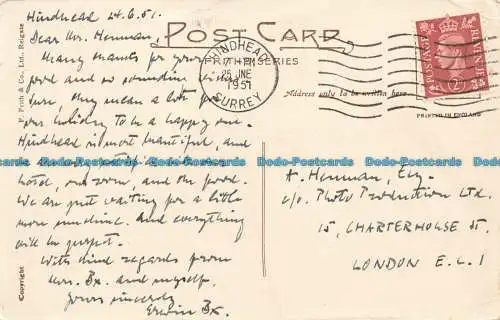 Hindhead 24.6.51.
Dear Mr. Herrman,
Many thanks for your
good and so sounding wishes
for us, they mean a lot for
our holiday to be a happy one.
Hindhead is most beautiful, and
hotel, our room, and the food.
We are just waiting for a little
more sunshine. And everything
will be perfect.
With kind regards from
Mrs. Bx. and myself,
Yours sincerely
Erwin Bx.
POST CARD
FRITH SERIES
HINDHEAD
7 PM
25 JNE
1951
SURREY
POSTAGE
REVENUE
Address only to be written here
PRINTED IN ENGLAND
A. Herrman, Esq.
c/o. Photo Production Ltd.
15, CHARTERHOUSE ST.
LONDON E.C.1
F. Frith & Co., Ltd., Reigate
Copyright
Dodo-Postcards Dodo-Postcards Dodo-Postcards Dodo-Postcards Dodo-Postcards